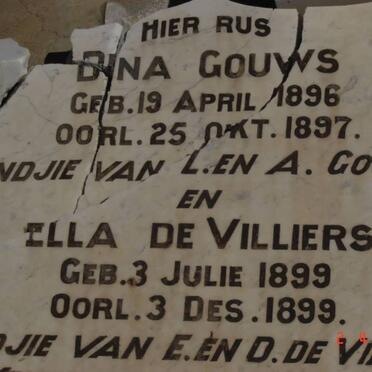 HIER RUS
DINA GOUWS
GEB. 19 APRIL 1896
OORL. 25 OKT. 1897.
NDJIE VAN L. EN A. GO
EN
ILLA DE VILLIERS
GEB. 3 JULIE 1899
OORL. 3 DES. 1899.
DJIE VAN E. EN D. DE VI